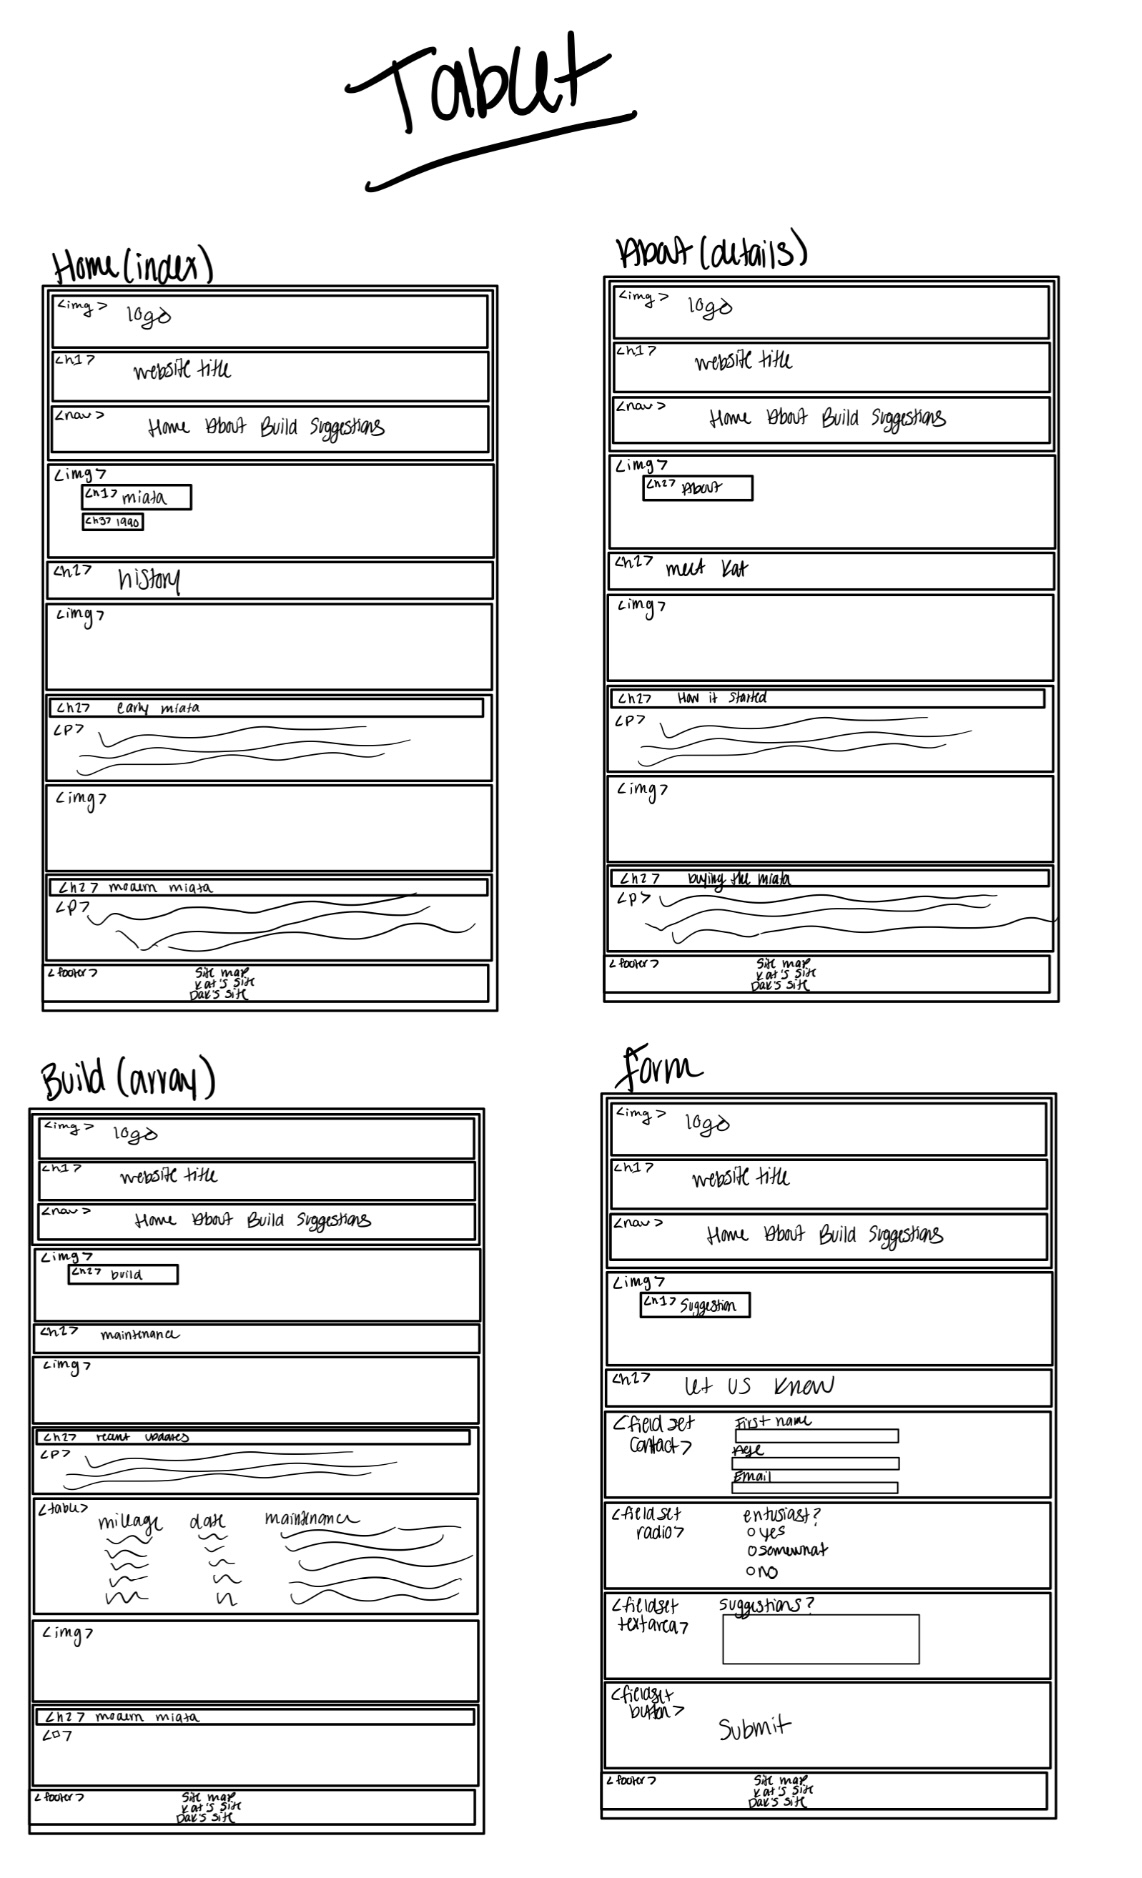 Tablet
Home (index)
<img> logo
<h1> website title
<nav> Home About Build Suggestions
<img>
<h1> miata
<h3> 1990
<h2> history
<img>
<h2> early miata
<p>
<img>
<h2> modern miata
<p>
<footer> Site map
Kat's Site
Dak's Site
About (details)
<img> logo
<h1> website title
<nav> Home About Build Suggestions
<img>
<h2> About
<h2> meet Kat
<img>
<h2> How it started
<p>
<img>
<h2> buying the miata
<p>
<footer> Site map
Kat's Site
Dak's Site
Build (array)
<img> logo
<h1> website title
<nav> Home About Build Suggestions
<img>
<h2> build
<h2> maintenance
<img>
<h2> recent updates
<p>
<table> mileage date maintenance
<img>
<h2> modern miata
<p>
<footer> Site map
Kat's Site
Dak's Site
Form
<img> logo
<h1> website title
<nav> Home About Build Suggestions
<img>
<h1> Suggestion
<h2> Let us know
<field set First name
contact> Age
Email
<field set entusiast?
radio> yes
somewhat
no
<fieldset suggestions?
textarea>
<fieldset
button> Submit
<footer> Site map
Kat's Site
Dak's Site